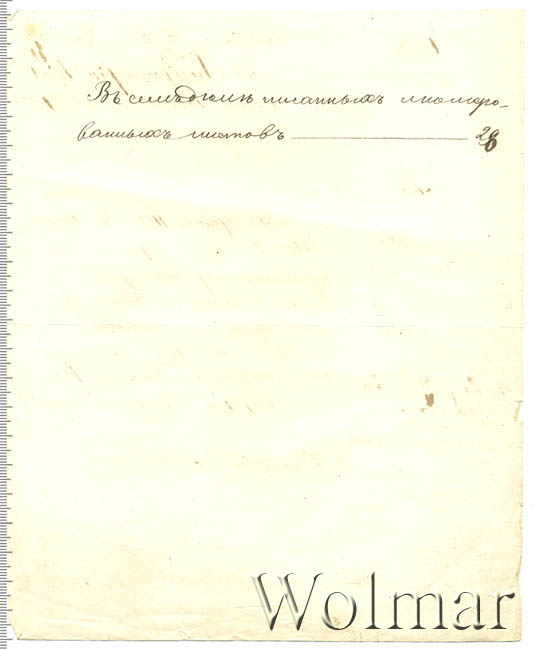 Въ семъ дѣлѣ писанныхъ и номеро-
ванныхъ листовъ
Wolmar